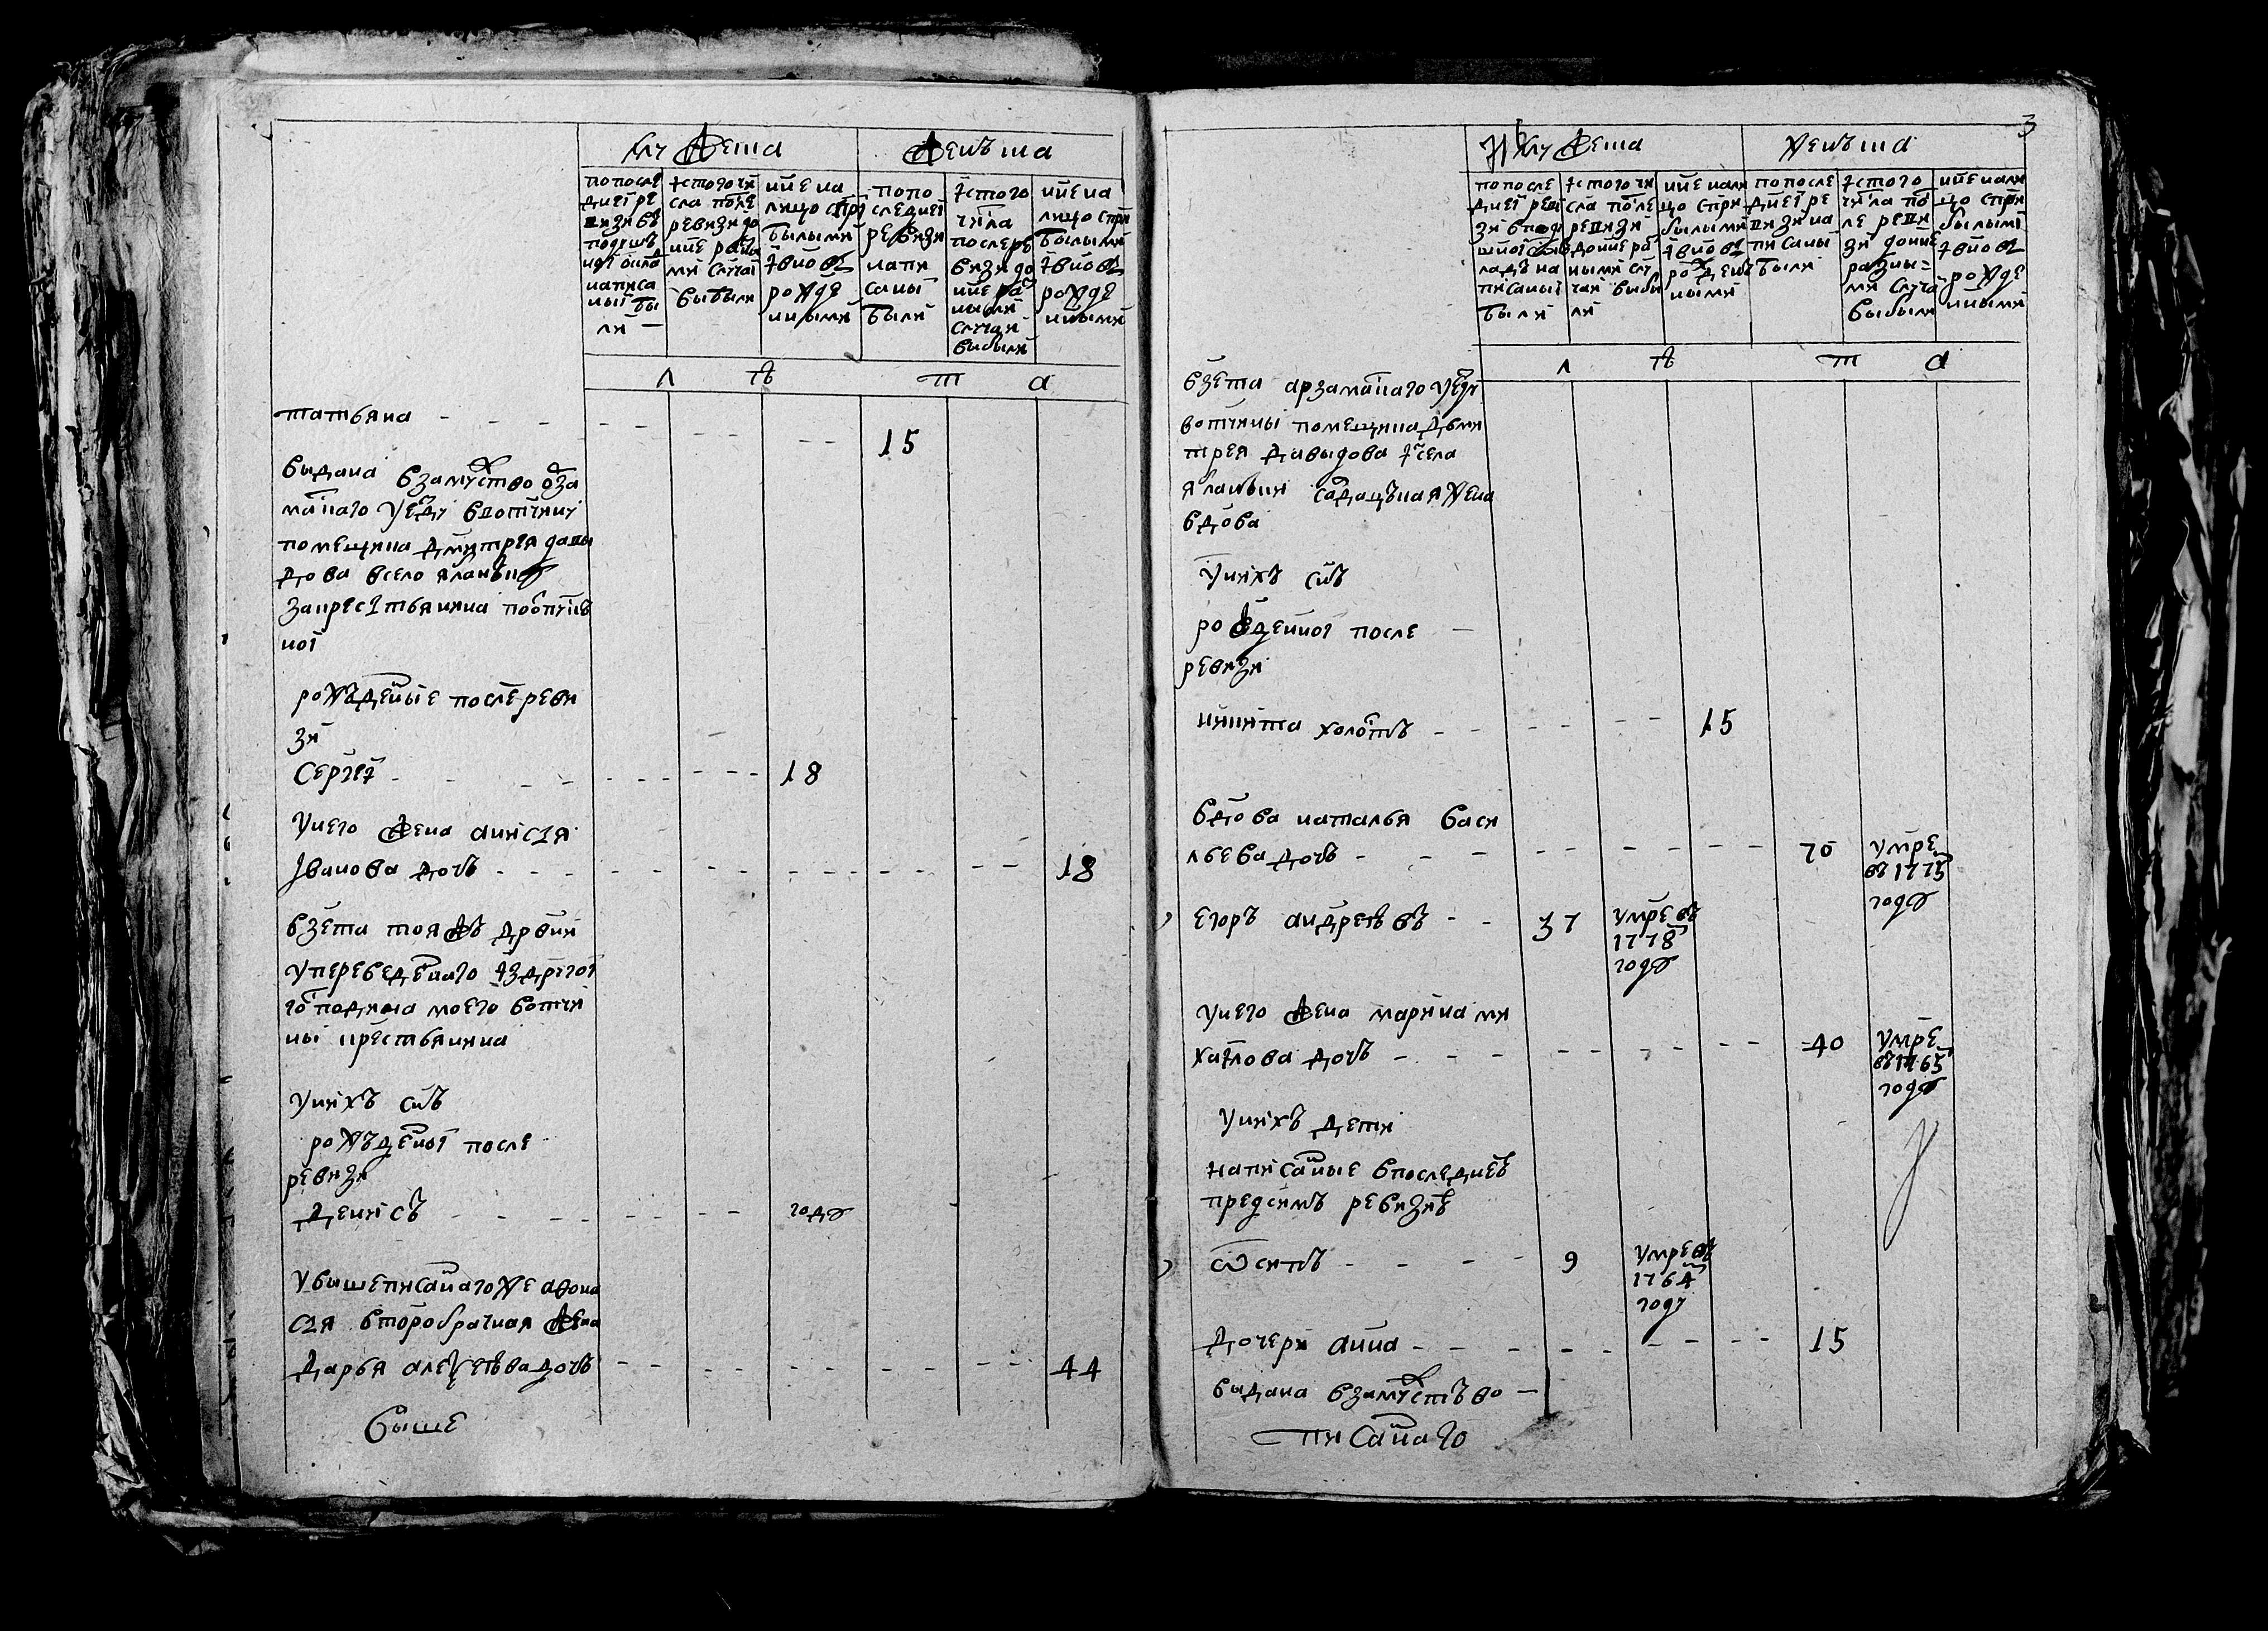 мужеска
женъска
попосле
днеі ре
визиі въ
подушъ
ноі окла
написа
ныі бы
ли
істого чи
сла после
ревизиі до
ныне разны
ми случаі
выбыли
ныне на
лицо спри
былыми
івновь
рожде
нными
попо
следнеі
ревизиі
напи
саны
были
істого
числа
послере
визиі до
ныне раз
ными
случаи
выбыли
ныне на
лицо спри
былыми
івновь
рожде
нными
л ѣ т а
татьяна 15
выдана взамужство арза
маского уезду ввотчину
помещика дмитрея давы
дова всело
закрестьянина
ноі
рожъденные после реви
зиі
Сергеі 18
Унего жена анисья
Iванова дочь 18
взета тояжъ дрвни
упереведеннаго іздругоі
господина моего вотчи
ны крестьянина
Унихъ снъ
рожъденноі после
ревизиі
Денисъ году
Увышеписаннагоже афона
сья второбрачная жена
дарья алексеѣва дочь 44
выше
3
мужеска
женъска
попосле
днеі реви
зиі вподу
шноі окъ
ладъ на
писаныі
были
істого чи
сла после
ревизиі
доныне раз
ными слу
чаи выбы
ли
ныне нали
цо спри
былыми
івновь
рожденъ
ными
попосле
днеі ре
визиі на
писаны
были
істого
числа по
сле реви
зиі доныне
разны
ми случа
выбыли
ныне нали
цо спри
былыми
івновь
рожде
нными
л ѣ т а
взета арзамаского уезду
вотчины помещика дьми
трея давыдова ісела
солдацъкая жена
вдова
Унихъ снъ
рожденноі после
ревизиі
никита холостъ 15
вдова наталья васи
льева дочь 70 умре
въ 1775
году
егоръ андреѣвъ 37 умре въ
1778
году
Унего жена марина ми
хаілова дочь 40 умре
въ 1765
году
Унихъ дети
написанные впоследнеѣ
предсимъ ревизиѣ
ѡсипъ 9 умре въ
1764
году
дочери анна 15
выдана взамуствъво
писаннаго